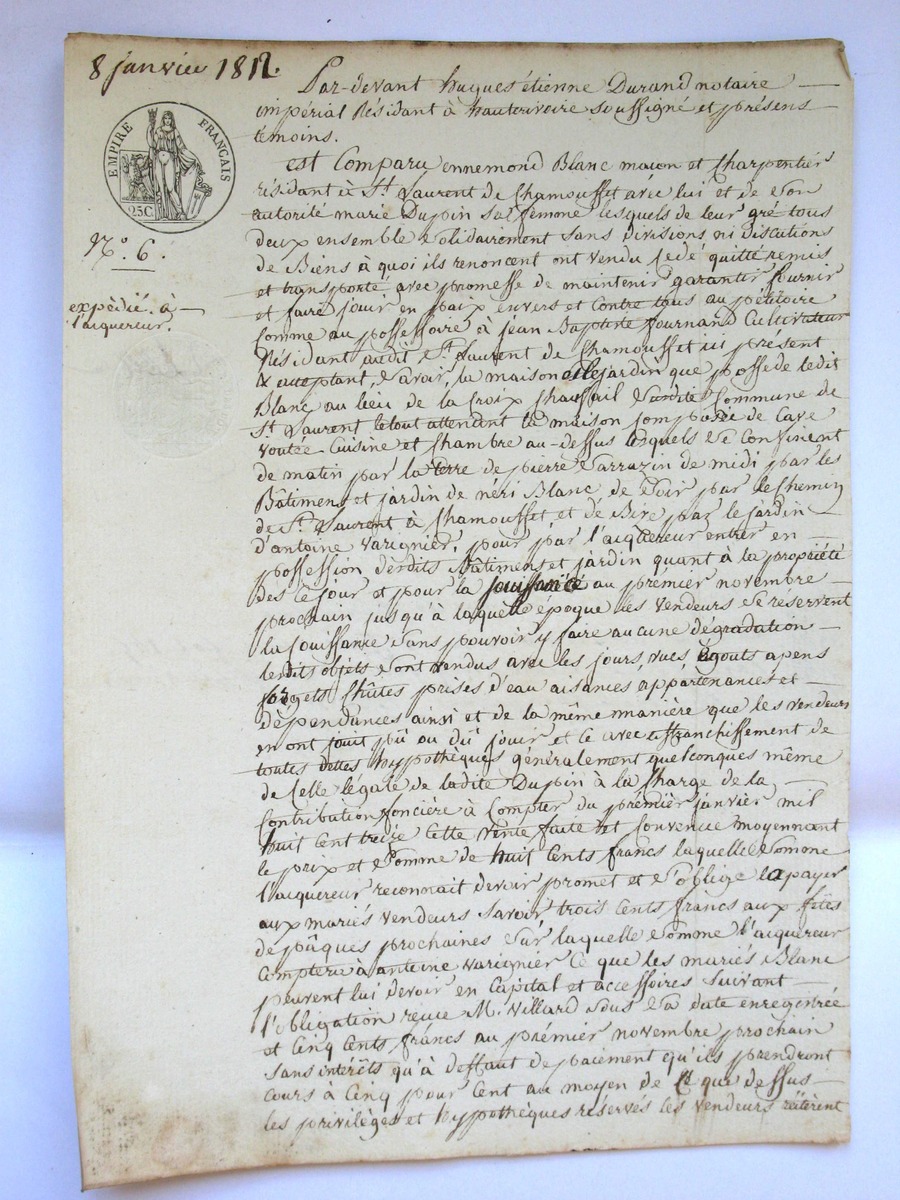 8 janvier 1812.
EMPIRE FRANÇAIS
25C.
N.o 6.
expédié à
l'aiquereur.
Par-devant hugues étienne Durand notaire
impérial Résidant à hauterivoire soussigné et présens
témoins.
est Comparu ennemond Blanc macon et Charpentier
résidant à St Laurent de Chamousset avec lui et de son
autorité marie Dupin sa femme lesquels de leur gré tous
deux ensemble solidairement sans divisions ni discutions
de Biens à quoi ils renoncent ont vendu cédé quitté remis
et transporté avec promesse de maintenir garantir fournir
et faire jouir en paix envers et Contre tous au pétitoire
Comme au possessoire à jean Baptiste fournand Cultivateur
Résidant audit St Laurent de Chamousset ici présent
& acceptant, savoir, la maison et le jardin que possede ledit
Blanc au lieu de la Croix susdite Commune de
St Laurent le tout attenant la maison Composée de Cave
voutée Cuisine et Chambre au-dessus lesquels se Confinent
de matin par la terre de pierre Sarrazin de midi par les
Bâtimens et jardin de néri Blanc de Soir par le Chemin
de St Laurent à Chamousset et de Bize par le jardin
d'antoine varignier, pour par l'aiquereur entrer en
possession desdits Bâtimens et jardin quant à la propriété
dès ce jour et pour la jouissance au premier novembre
prochain jusqu'à laquelle époque les vendeurs se réservent
la jouissance sans pouvoir y faire aucune dégradation
lesdits objets sont vendus avec les jours, vues, Egouts apens
Chûtes prises d'eau aisances appartenances et
dépendances ainsi et de la même manière que les vendeurs
en ont jouit pû au dû jouir et ce avec affranchissement de
toutes dettes hypothèques généralement quelconques même
de Celle légale de ladite Dupin à la Charge de la
Contribution foncière à Compter du prémier janvier mil
huit Cent treize Cette vente faite et Convenue moyennant
le prix et Somme de huit Cents francs laquelle Somme
l'aiquereur reconnait devoir promet et s'oblige la payer
aux mariés vendeurs Savoir trois Cents francs aux fêtes
de pâques prochaines sur laquelle Somme l'aiquereur
Comptera à antoine varignier Ce que les mariés Blanc
peuvent lui devoir en Capital et accessoires Suivant
l'obligation reçue M. villard sous sa date enregistrée
et Cinq Cents francs au prémier novembre prochain
sans intérêts qu'à deffaut de paiement qu'ils prendront
cours à Cinq pour Cent au moyen de Ce que dessus
les privilèges et hypothèques réservés les vendeurs réitèrent